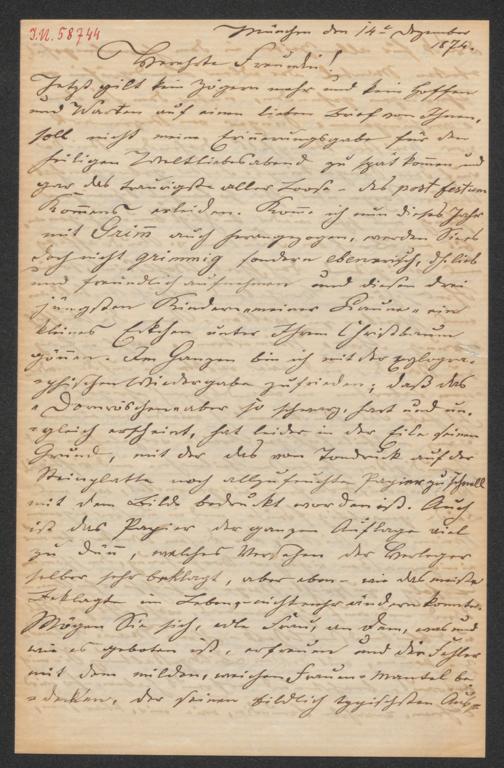 I.N. 58744
München den 14t Dezember
1874.
Verehrte Freundin!
Jetzt gilt kein Zögern mehr und kein Hoffen
und Warten auf einen lieben Brief von Ihnen,
soll nicht meine Erinnerungsgabe für den
heiligen Weltliebesabend zu spät kommen und
gar das traurigste aller Loose - des post festum
Kommens erleiden. Komme ich nun dieses Jahr
mit Grimm auch herangezogen, werden Sie es
doch nicht grimmig sondern ebnerisch, d.h. lieb
und freundlich aufnehmen und diesen drei
jüngsten Kindern meiner Laune ein
kleines Eckchen unter Ihrem Christbaum
gönnen. Im Ganzen bin ich mit der xylogra-
phischen Wiedergabe zufrieden; daß das
"Dornröschen" aber so schwarz, hart und un-
gleich erscheint, hat leider in der Eile seinen
Grund, mit der das vom Tondruck auf der
Steinplatte noch allzufeuchte Papier zu schnell
mit dem Bilde bedruckt worden ist. Auch
ist das Papier der ganzen Auflage viel
zu dünn, welches Versehen der Verleger
selber sehr beklagt, aber eben - wie das meiste
Beklagte im Leben - nicht mehr ändern konnte.
Mögen Sie sich, edle Frau, an dem, was und
wie es geboten ist, erfreuen und die Fehler
mit dem milden, weichen Frauen-Mantel be-
decken, der seinen bildlich typischsten Aus-